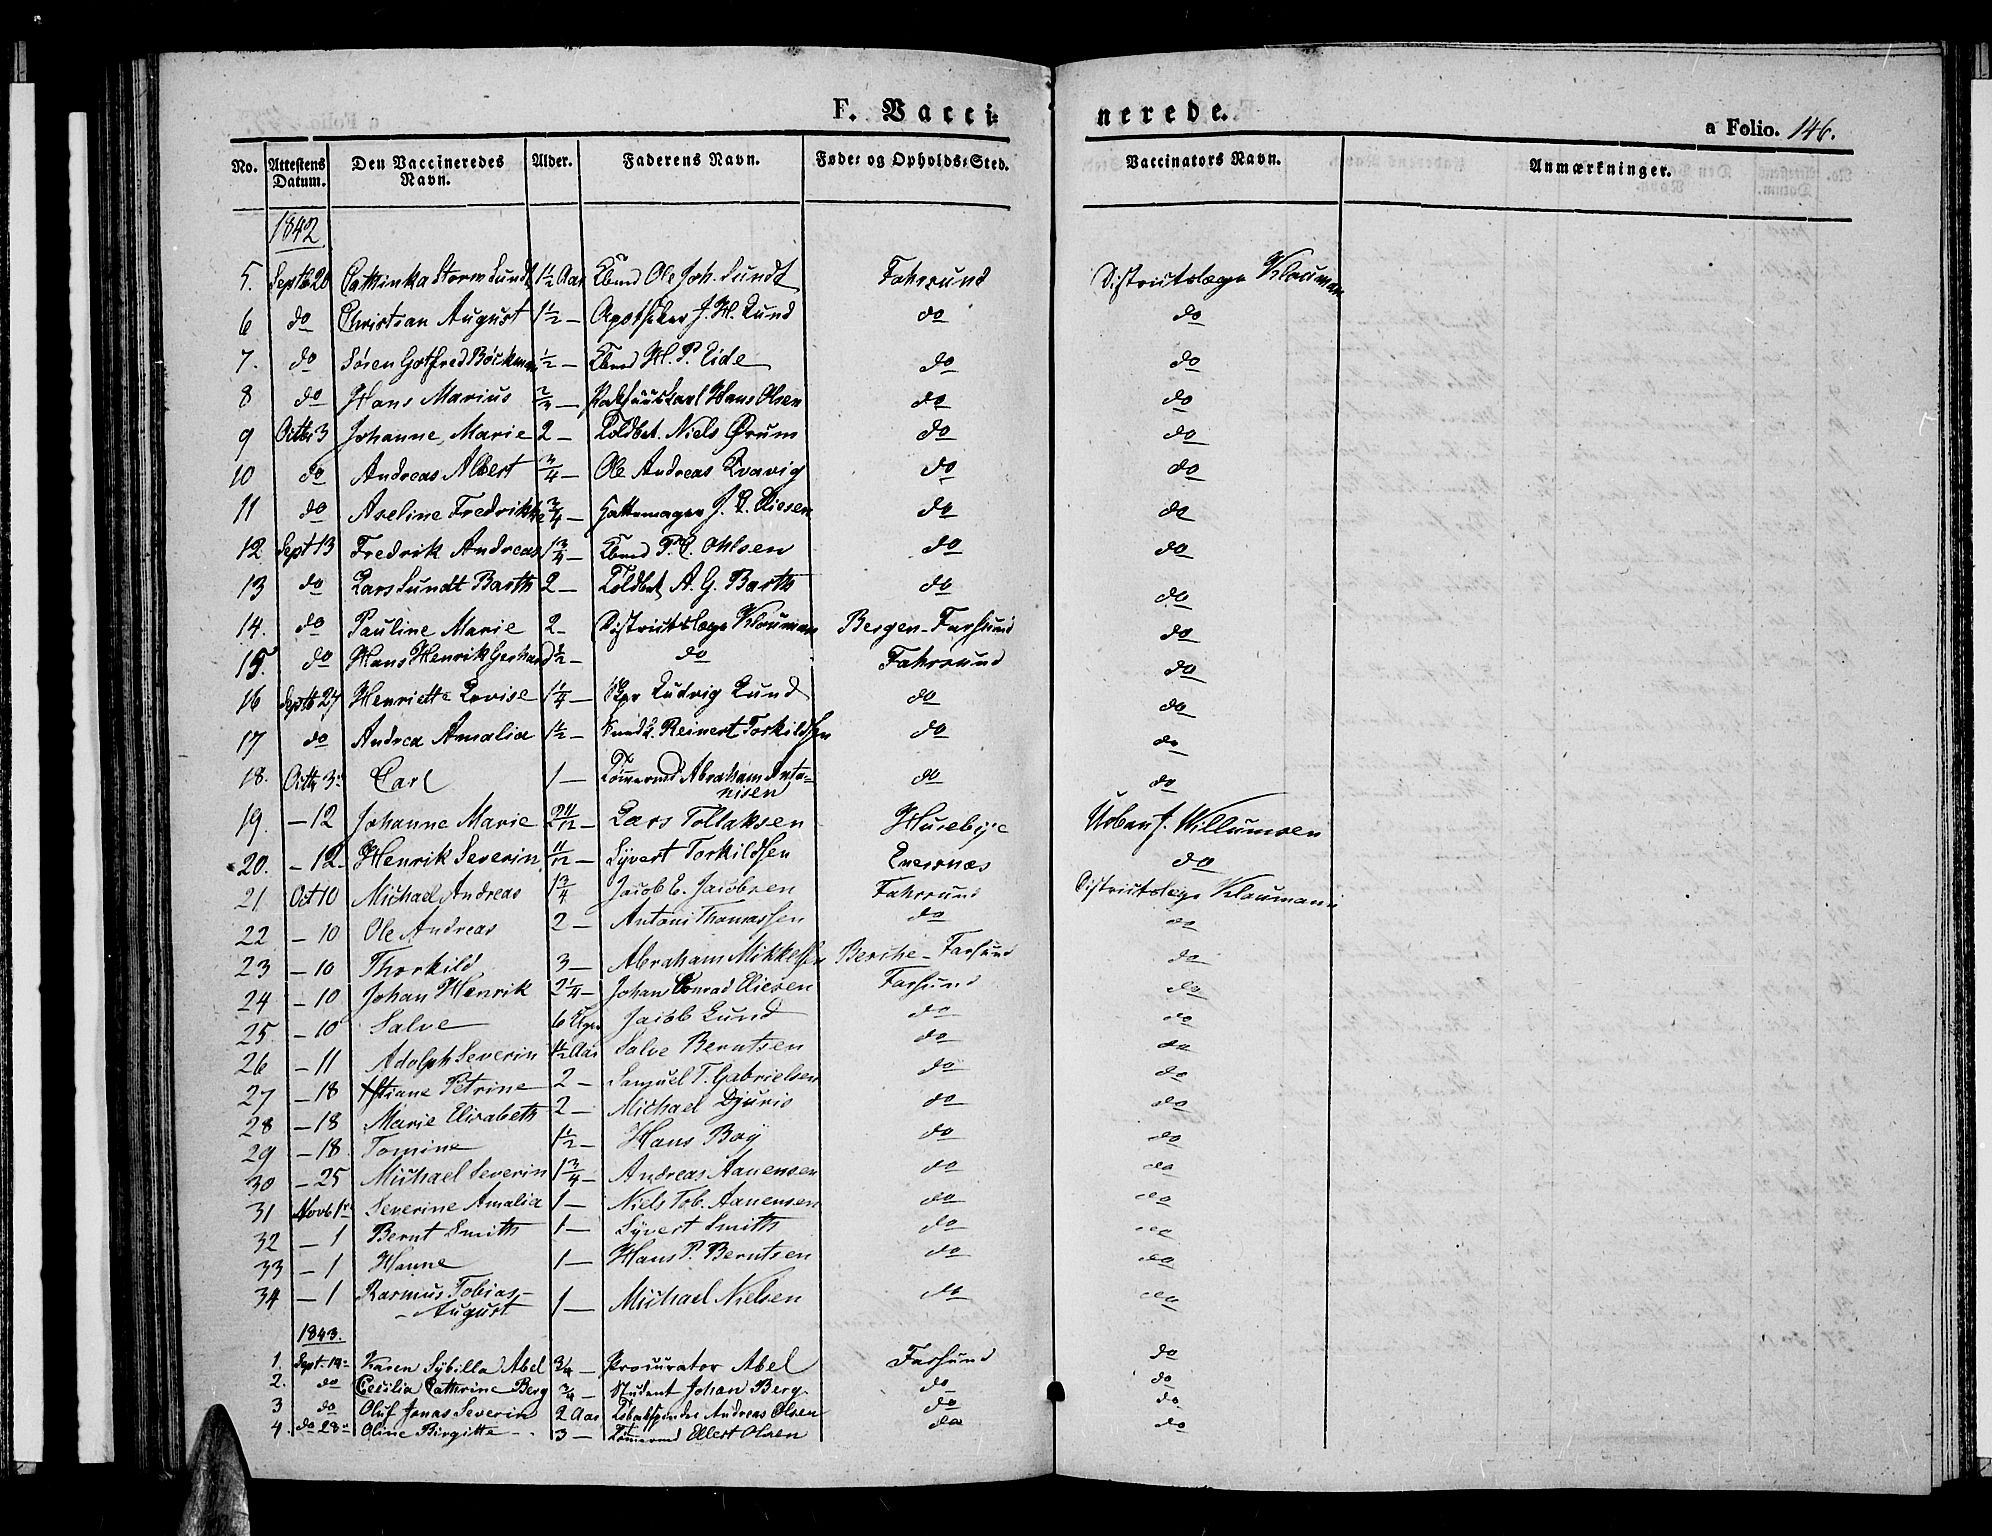 F. Vacci=
nerede.
a Folio. 146.
No. Attestens Datum. Den Vaccineredes Navn. Alder. Faderens Navn. Føde= og Opholds=Sted. Vaccinators Navn. Anmærkninger.
1842
5. Septb 20 Cathinka Storm Lundt 1½ Aar Kbmd Ole Joh. Lundt Fahrsund Districtslæge Klouman
6 do Christian August 1½ – Apotheker J. H. Lund do do
7. do Søren Gotfred Bøckman ½ – Kbmd H. P. Eide do do
8 do Hans Marius ⅔ – Pakhuuskarl Hans Olsen do do
9 Octbr 3 Johanne Marie 2 – Toldbet. Niels Ørum do do
10 do Andreas Albert ¾ – Ole Andreas Qvavig do do
11 do Aseline Fredrikke ¾ – Hattemager J. Q. Eliesen do do
12 Sept 13 Fredrik Andreas 1¾ – Kbmd P. C. Ohlsen do do
13 do Lars Lundt Barth 2 – Toldbet A. G. Barth do do
14. do Pauline Marie 2 – Districtslæge Klouman Bergen – Farsund do
15. do Hans Henrik Gerhard ½ – do Fahrsund do
16 Septb 27 Henriette Lovise 1¼ – Skpr Ludvig Lund do do
17 do Andrea Amalia 1½ – Reinert Torkildsen do do
18. Octbr 3 Carl 1 – Tømermd Abraham Anto=
nisen do do
19. – 12 Johanne Marie 2 11/12 – Lars Tollaksen Huseby Urban J. Willumsen
20. – 12 – Henrik Severin 11/12 – Syvert Torkildsen Eversnæs do
21 Oct 10 Michael Andreas 1¾ Jacob E. Jacobsen Fahrsund Districtslæge Kloumann
22 – 10 Ole Andreas 2 – Antoni Thomassen do do
23 – 10 Thorkild 3 – Abraham Mikkelsen – Farsund do
24 – 10 Johan Henrik 2¼ – Johan Conrad Eliesen Farsund do
25 – 10 Salve 6 Uger Jacob Lund do do
26 – 11 Adolph Severin 1½ Aar Salve Berntsen do do
27 – 18 Stiane Petrine 2 – Samuel T. Gabrielsen do do
28 – 18 Marie Elisabeth 2 – Michael Djuris do do
29 – 18 Tomine 1½ – Hans Boy do do
30 – 25 Michael Severin 1¾ – Andreas Aanensen do do
31 Novb 1 Severine Amalia 1 – Niels Tob. Aanensen do do
32 – 1 Bernt Smith 1 – Syvert Smith do do
33 – 1 Hanne 1 – Hans P. Berntsen do do
34 – 1 Rasmus Tobias –
– August 1 – Michael Nielsen do do
1843.
1. Sept. 14 Karen Sybilla Abel ¾ – Procurator Abel Farsund do
2. do Cecilia Cathrine Berg ¾ – Student Johan Berg do do
3 do Oluf Jonas Severin 2 Aar Tobakspinder Andreas Olsen do do
4. do 28 Oline Birgitte 3 – Tømermd Ellert Olsen do do